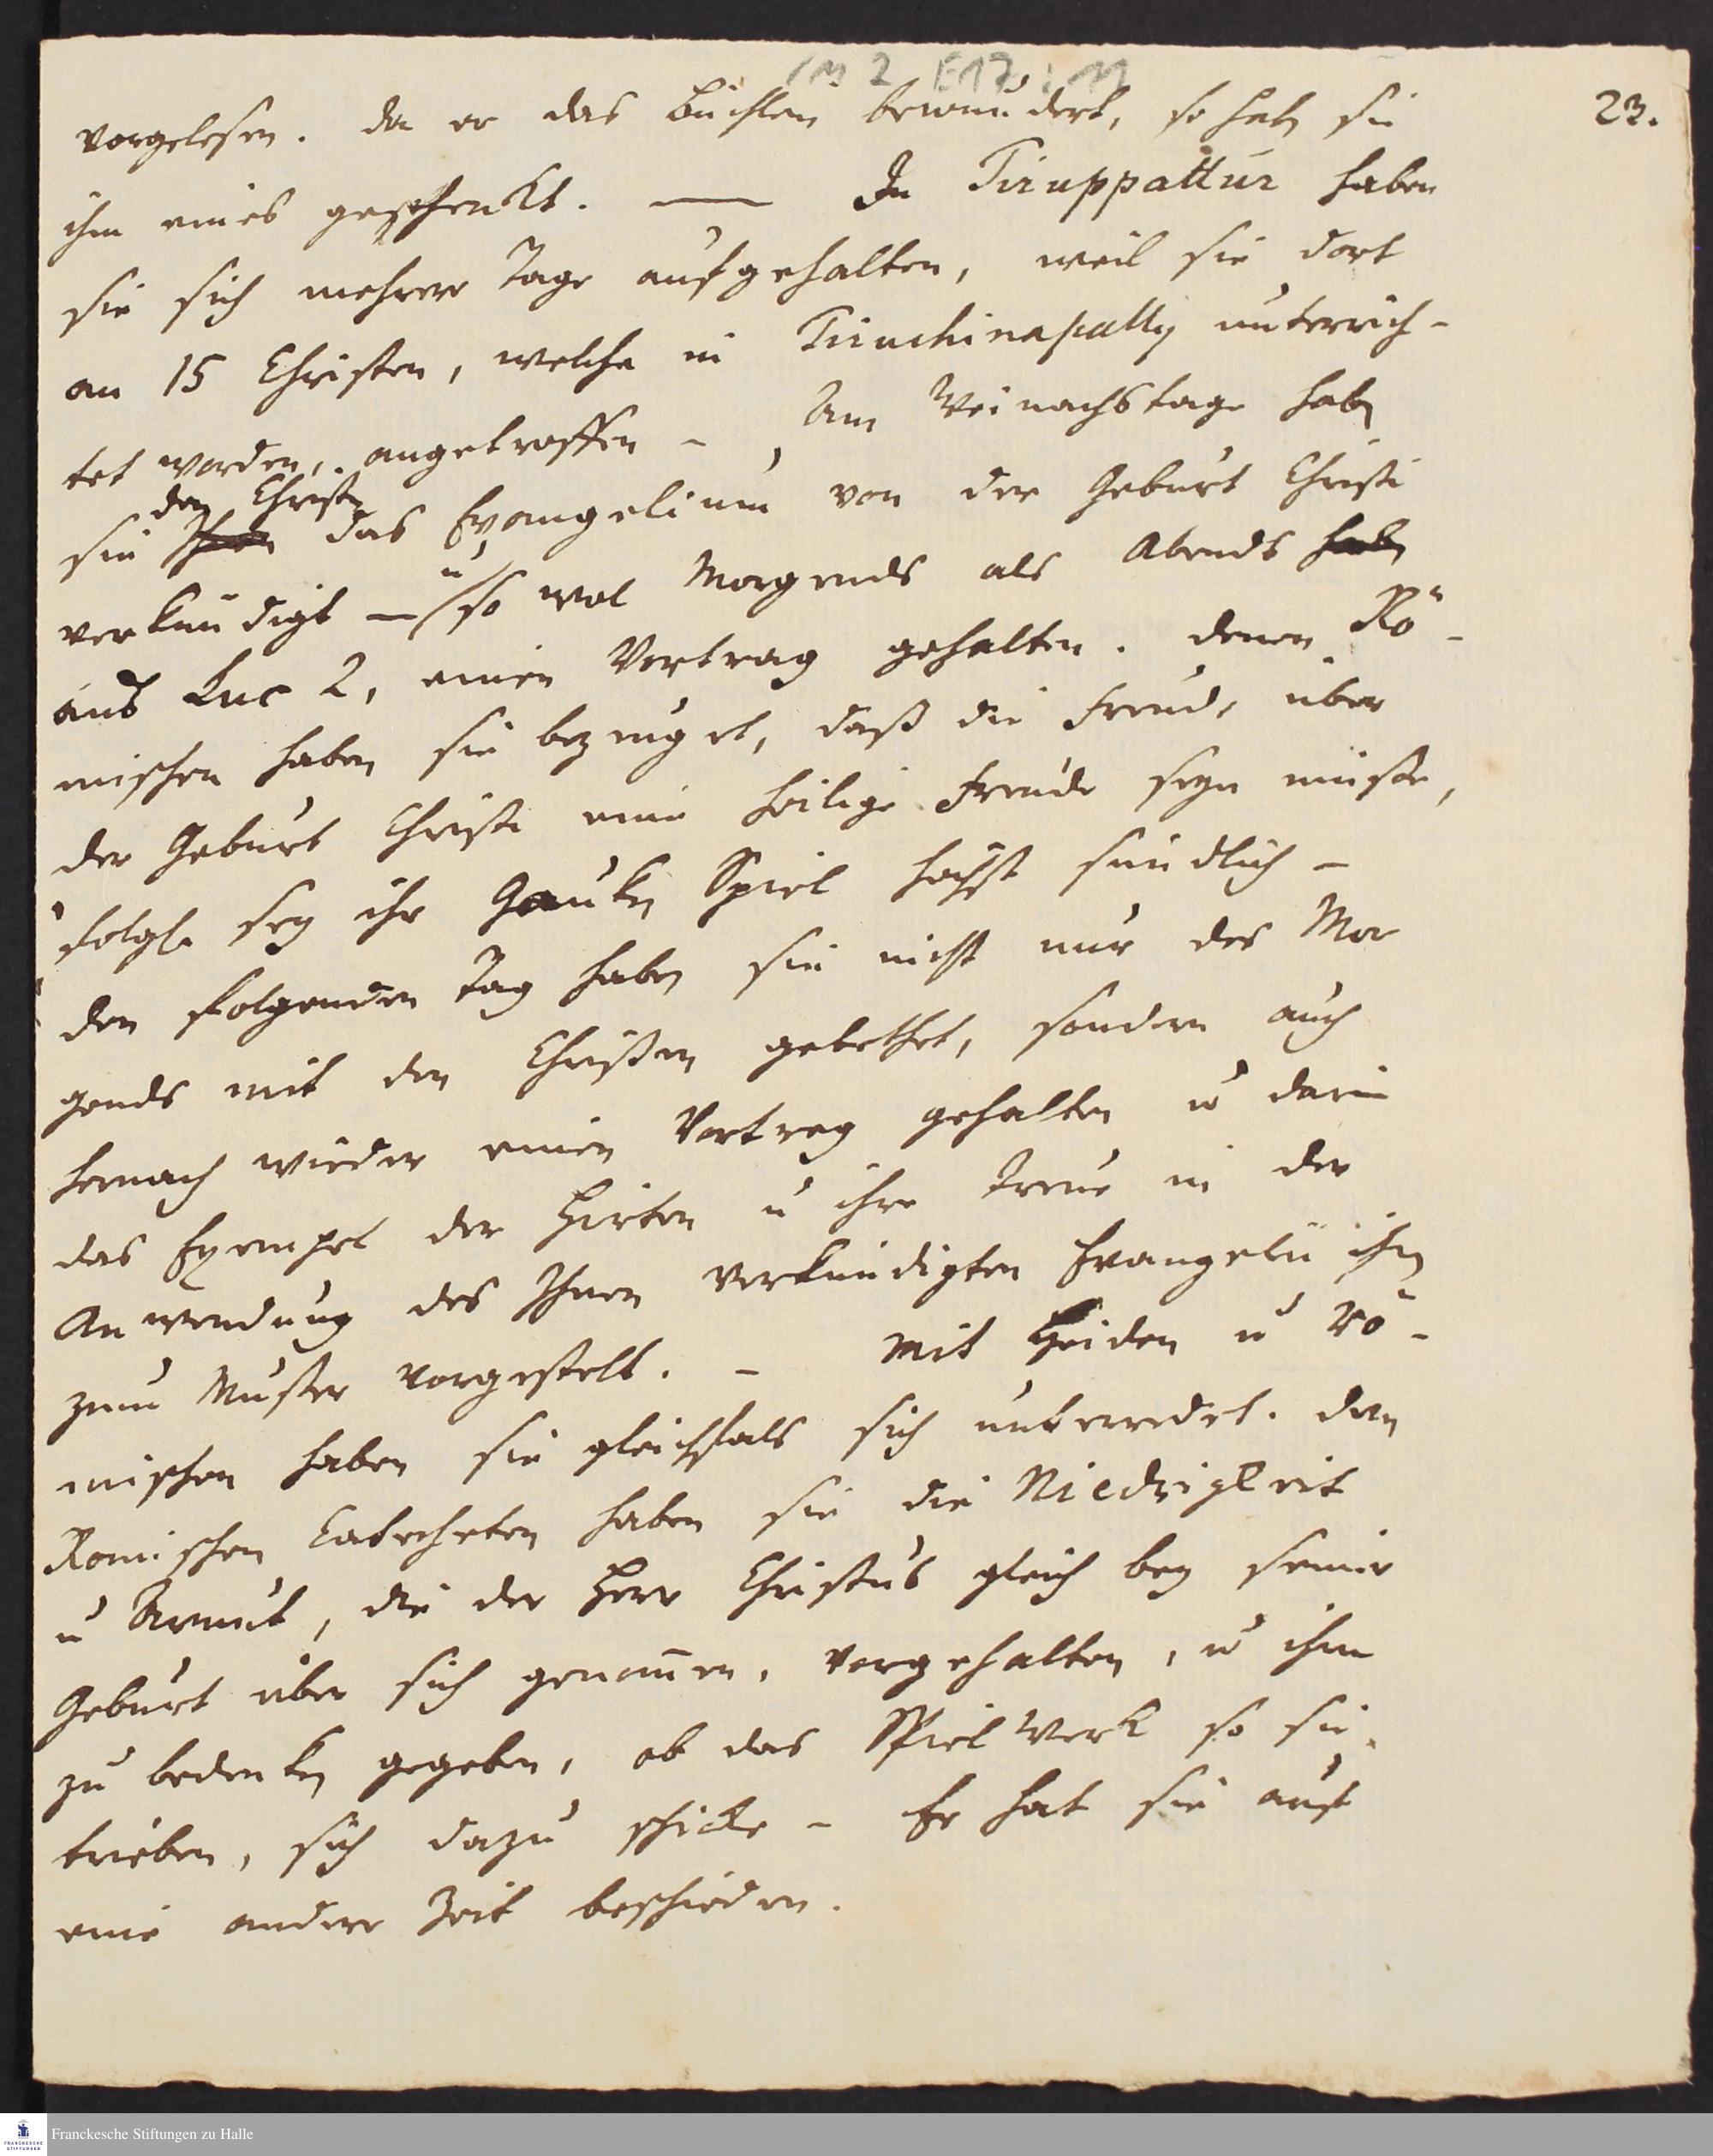 1M 2 E17 : 11
23.
vorgelesen. da er das Büchlein bewundert, so habn sie
ihm eines geschenckt. — In Tiruppattúr haben
sie sich mehrere Tage aufgehalten, weil sie dort
an 15 Christen, welche in Tirutchinapally unterrich-
tet worden, angetroffen - Am Weinachstage habn
den Christn
sie Ihnen das Evangelium von der Geburt Christi
verkündigt — u so wol Morgends als Abends habn
aus Luc 2, einen Vortrag gehalten. denen Rö-
mischen haben sie bezeuget, daß die Freude über
der Geburt Christi eine heilige Freude seyn müsse,
folgl. sey ihr Gaukn Spiel höchst sündlich -
den folgenden Tag haben sie nicht nur des Mor
gends mit den Christen gebethet, sondern auch
hernach wieder einen Vortrag gehalten u darin
das Exempel der Hirten u ihre Treue in der
Anwendung des Ihnen verkündigten Evangelii ihn
zum Muster vorgestelt. - Mit Heiden u Rö-
mischen haben sie gleichfals sich unterredet. dem
Romischen Catecheten haben sie die Niedrigkeit
u Armut, die der Herr Christus gleich bey seiner
Geburt über sich genom̄en, vorgehalten, u ihm
zu bedenkn gegeben, ob das Spiel Werk so sie
trieben, sich dazu schicke - Er hat sie auf
eine andere Zeit beschieden.
Franckesche Stiftungen zu Halle